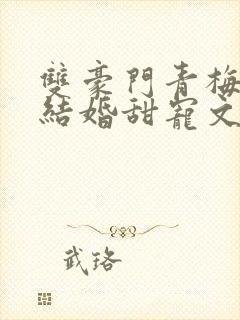 雙豪門青梅
結婚甜寵文
武珞